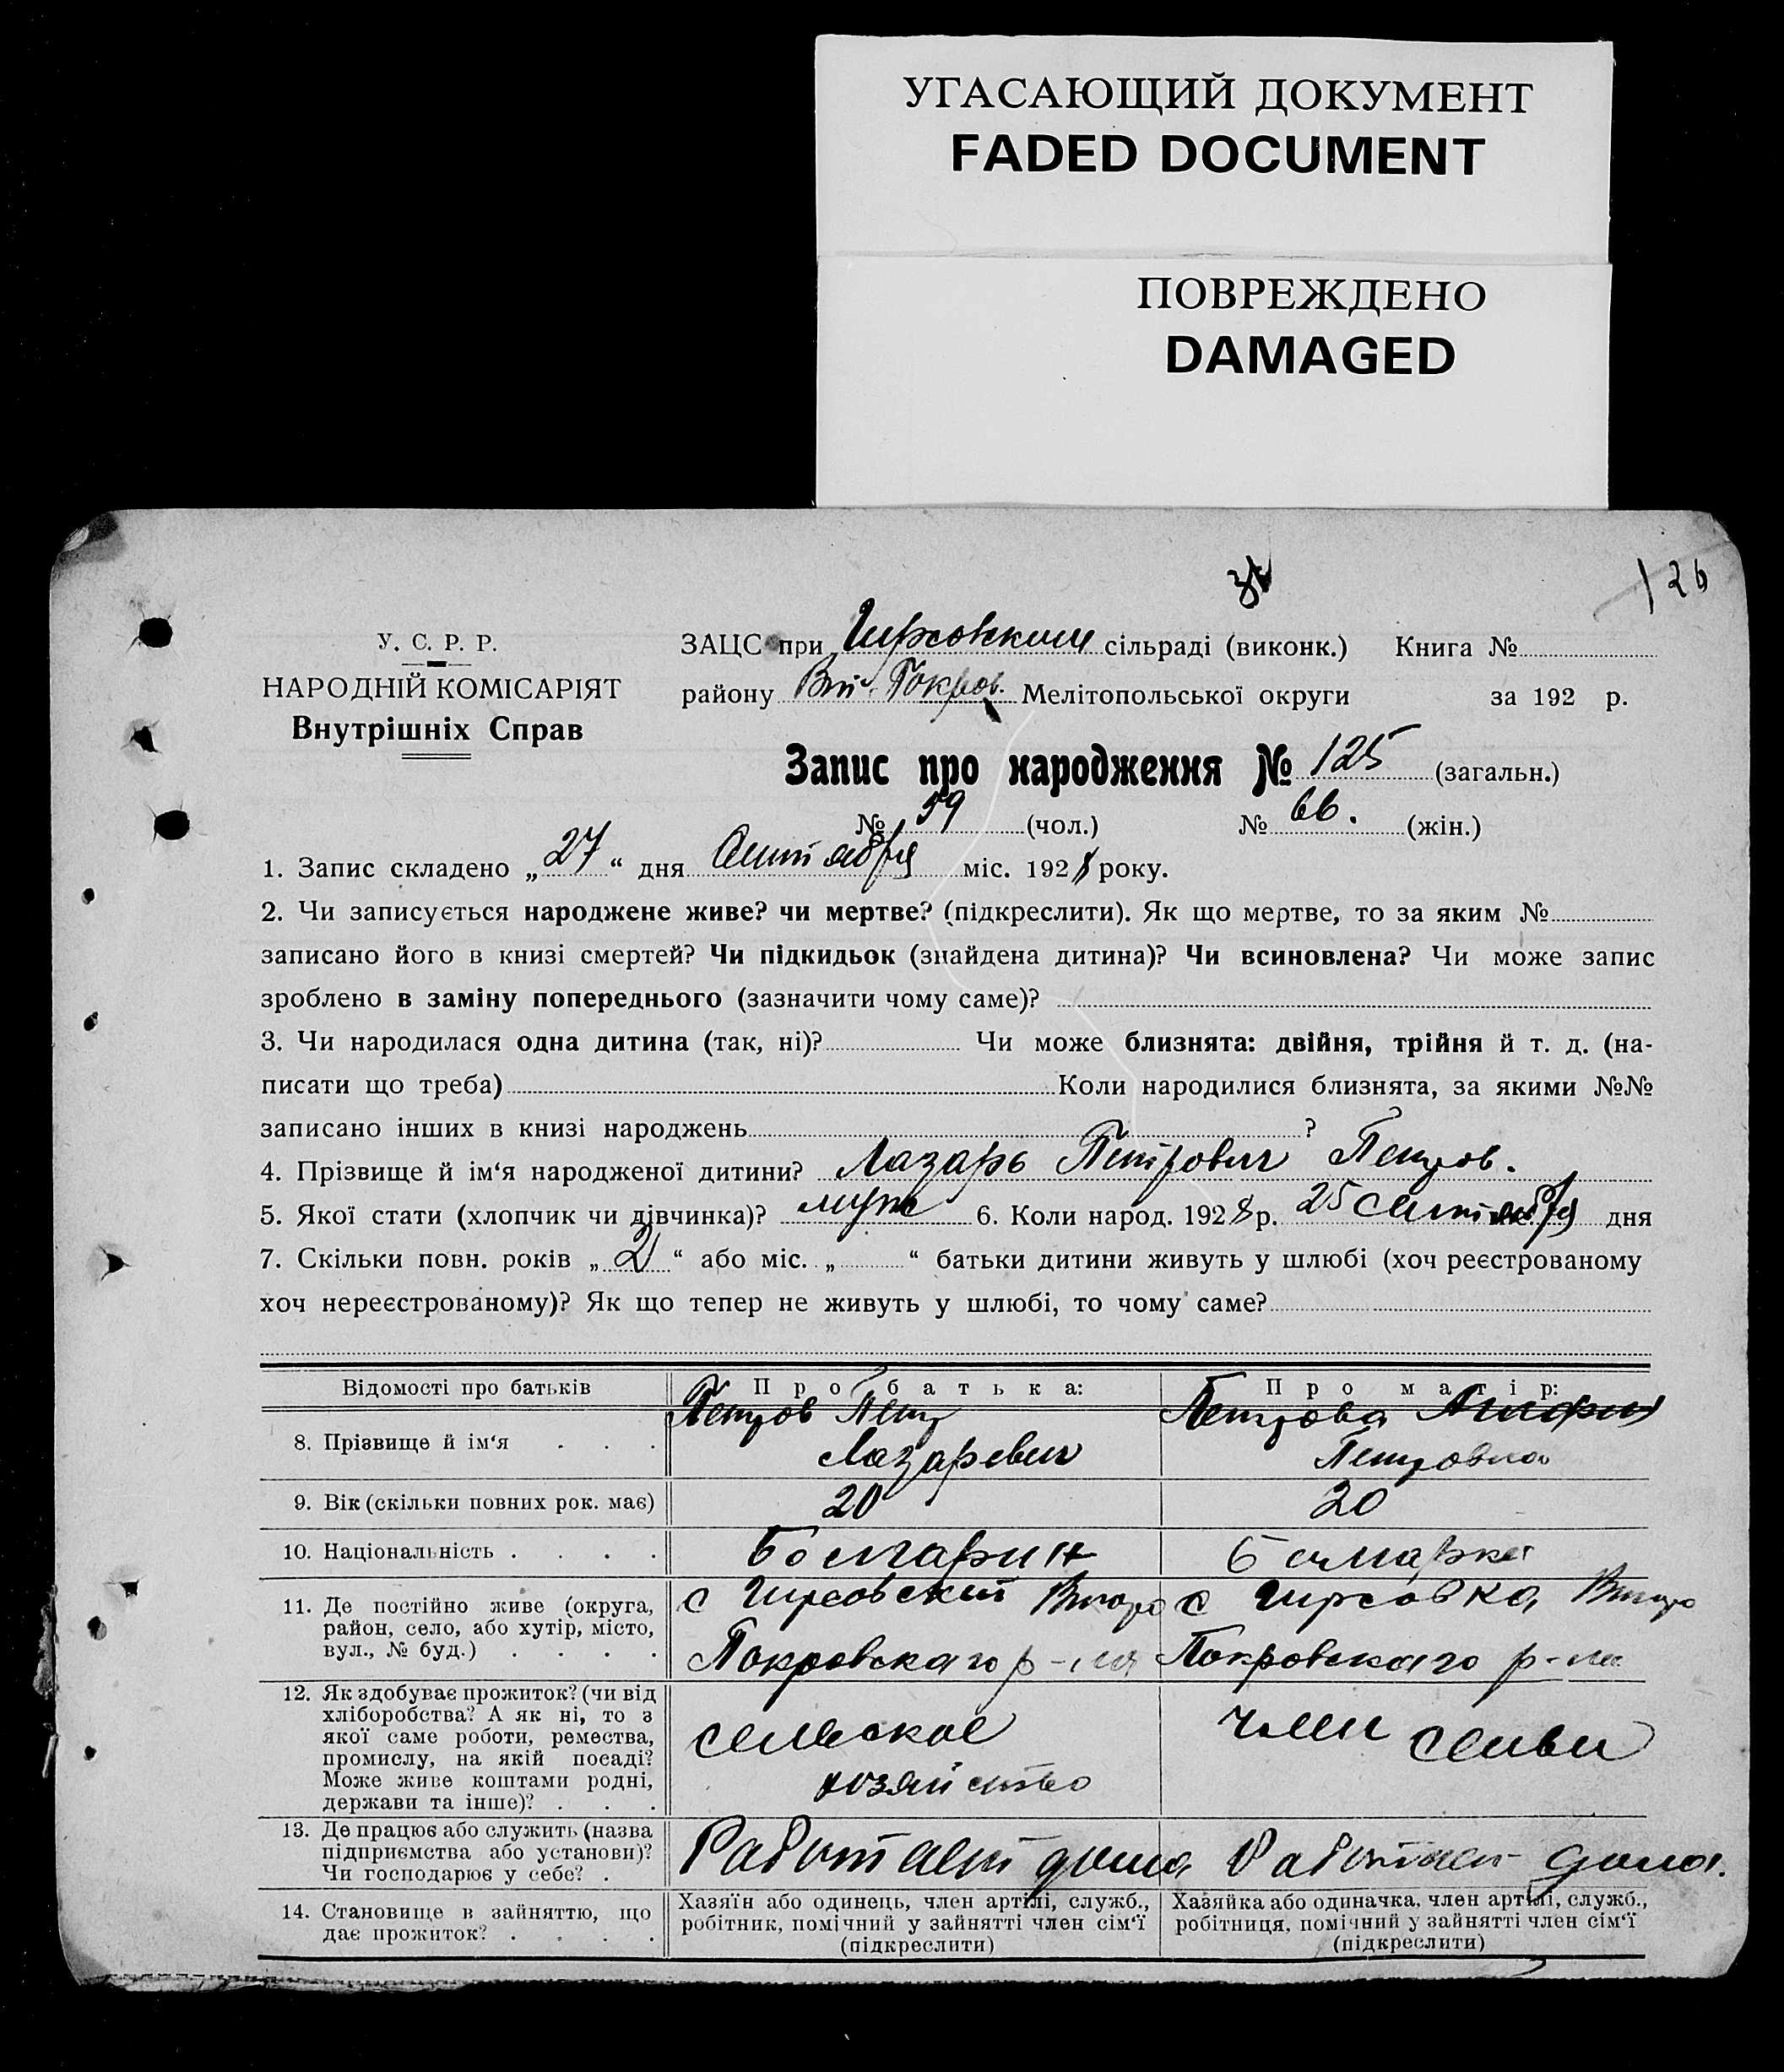 УГАСАЮЩИЙ ДОКУМЕНТ
FADED DOCUMENT
ПОВРЕЖДЕНО
DAMAGED
126
У. С. Р. Р.
НАРОДНІЙ КОМІСАРІЯТ
Внутрішніх Справ
ЗАЦС при Гирсовском сільраді (виконк.) Книга №
району Вт. Покров. Мелітопольської округи за 192 р.
Запис про народження № 125 (загальн.)
№ 59 (чол.) № 66. (жін.)
1. Запис складено „ 27 “ дня Сентября міс. 1928 року.
2. Чи записується народжене живе? чи мертве? (підкреслити). Як що мертве, то за яким №
записано його в книзі смертей? Чи підкидьок (знайдена дитина)? Чи всиновлена? Чи може запис
зроблено в заміну попереднього (зазначити чому саме)?
3. Чи народилася одна дитина (так, ні)? Чи може близнята: двійня, трійня й т. д. (на-
писати що треба) Коли народилися близнята, за якими №№
записано інших в книзі народжень ?
4. Прізвище й ім‘я народженої дитини? Лазарь Петрович Петров.
5. Якої стати (хлопчик чи дівчинка)? муж 6. Коли народ. 1928 р. 25 Сентября дня
7. Скільки повн. років „ 2 “ або міс. „ “ батьки дитини живуть у шлюбі (хоч реєстрованому
хоч нереєстрованому)? Як що тепер не живуть у шлюбі, то чому саме?
Відомості про батьків Про батька: Про матір:
8. Прізвище й ім‘я . . . Петров Петр Лазаревич Петрова Петровна
9. Вік (скільки повних рок. має) 20 20
10. Національність . . . . Болгарин Болгарка
11. Де постійно живе (округа,
район, село, або хутір, місто,
вул., № буд.) . . . .
с Гирсовский Второ с Гирсовка Второ
Покровскаго р-на Покровскаго р-на
12. Як здобуває прожиток? (чи від
хліборобства? А як ні, то з
якої саме роботи, ремества,
промислу, на якій посаді?
Може живе коштами родні,
держави та інше)? . . .
сельское хозяйство член семьи
13. Де працює або служить (назва
підприємства або установи)?
Чи господарює у себе? .
Работает дома Работает дома.
14. Становище в зайняттю, що
дає прожиток? . . . .
Хазяїн або одинець, член артілі, служб.,
робітник, помічний у зайнятті член сім‘ї
(підкреслити)
Хазяйка або одиначка, член артілі, служб.,
робітниця, помічний у зайнятті член сім‘ї
(підкреслити)